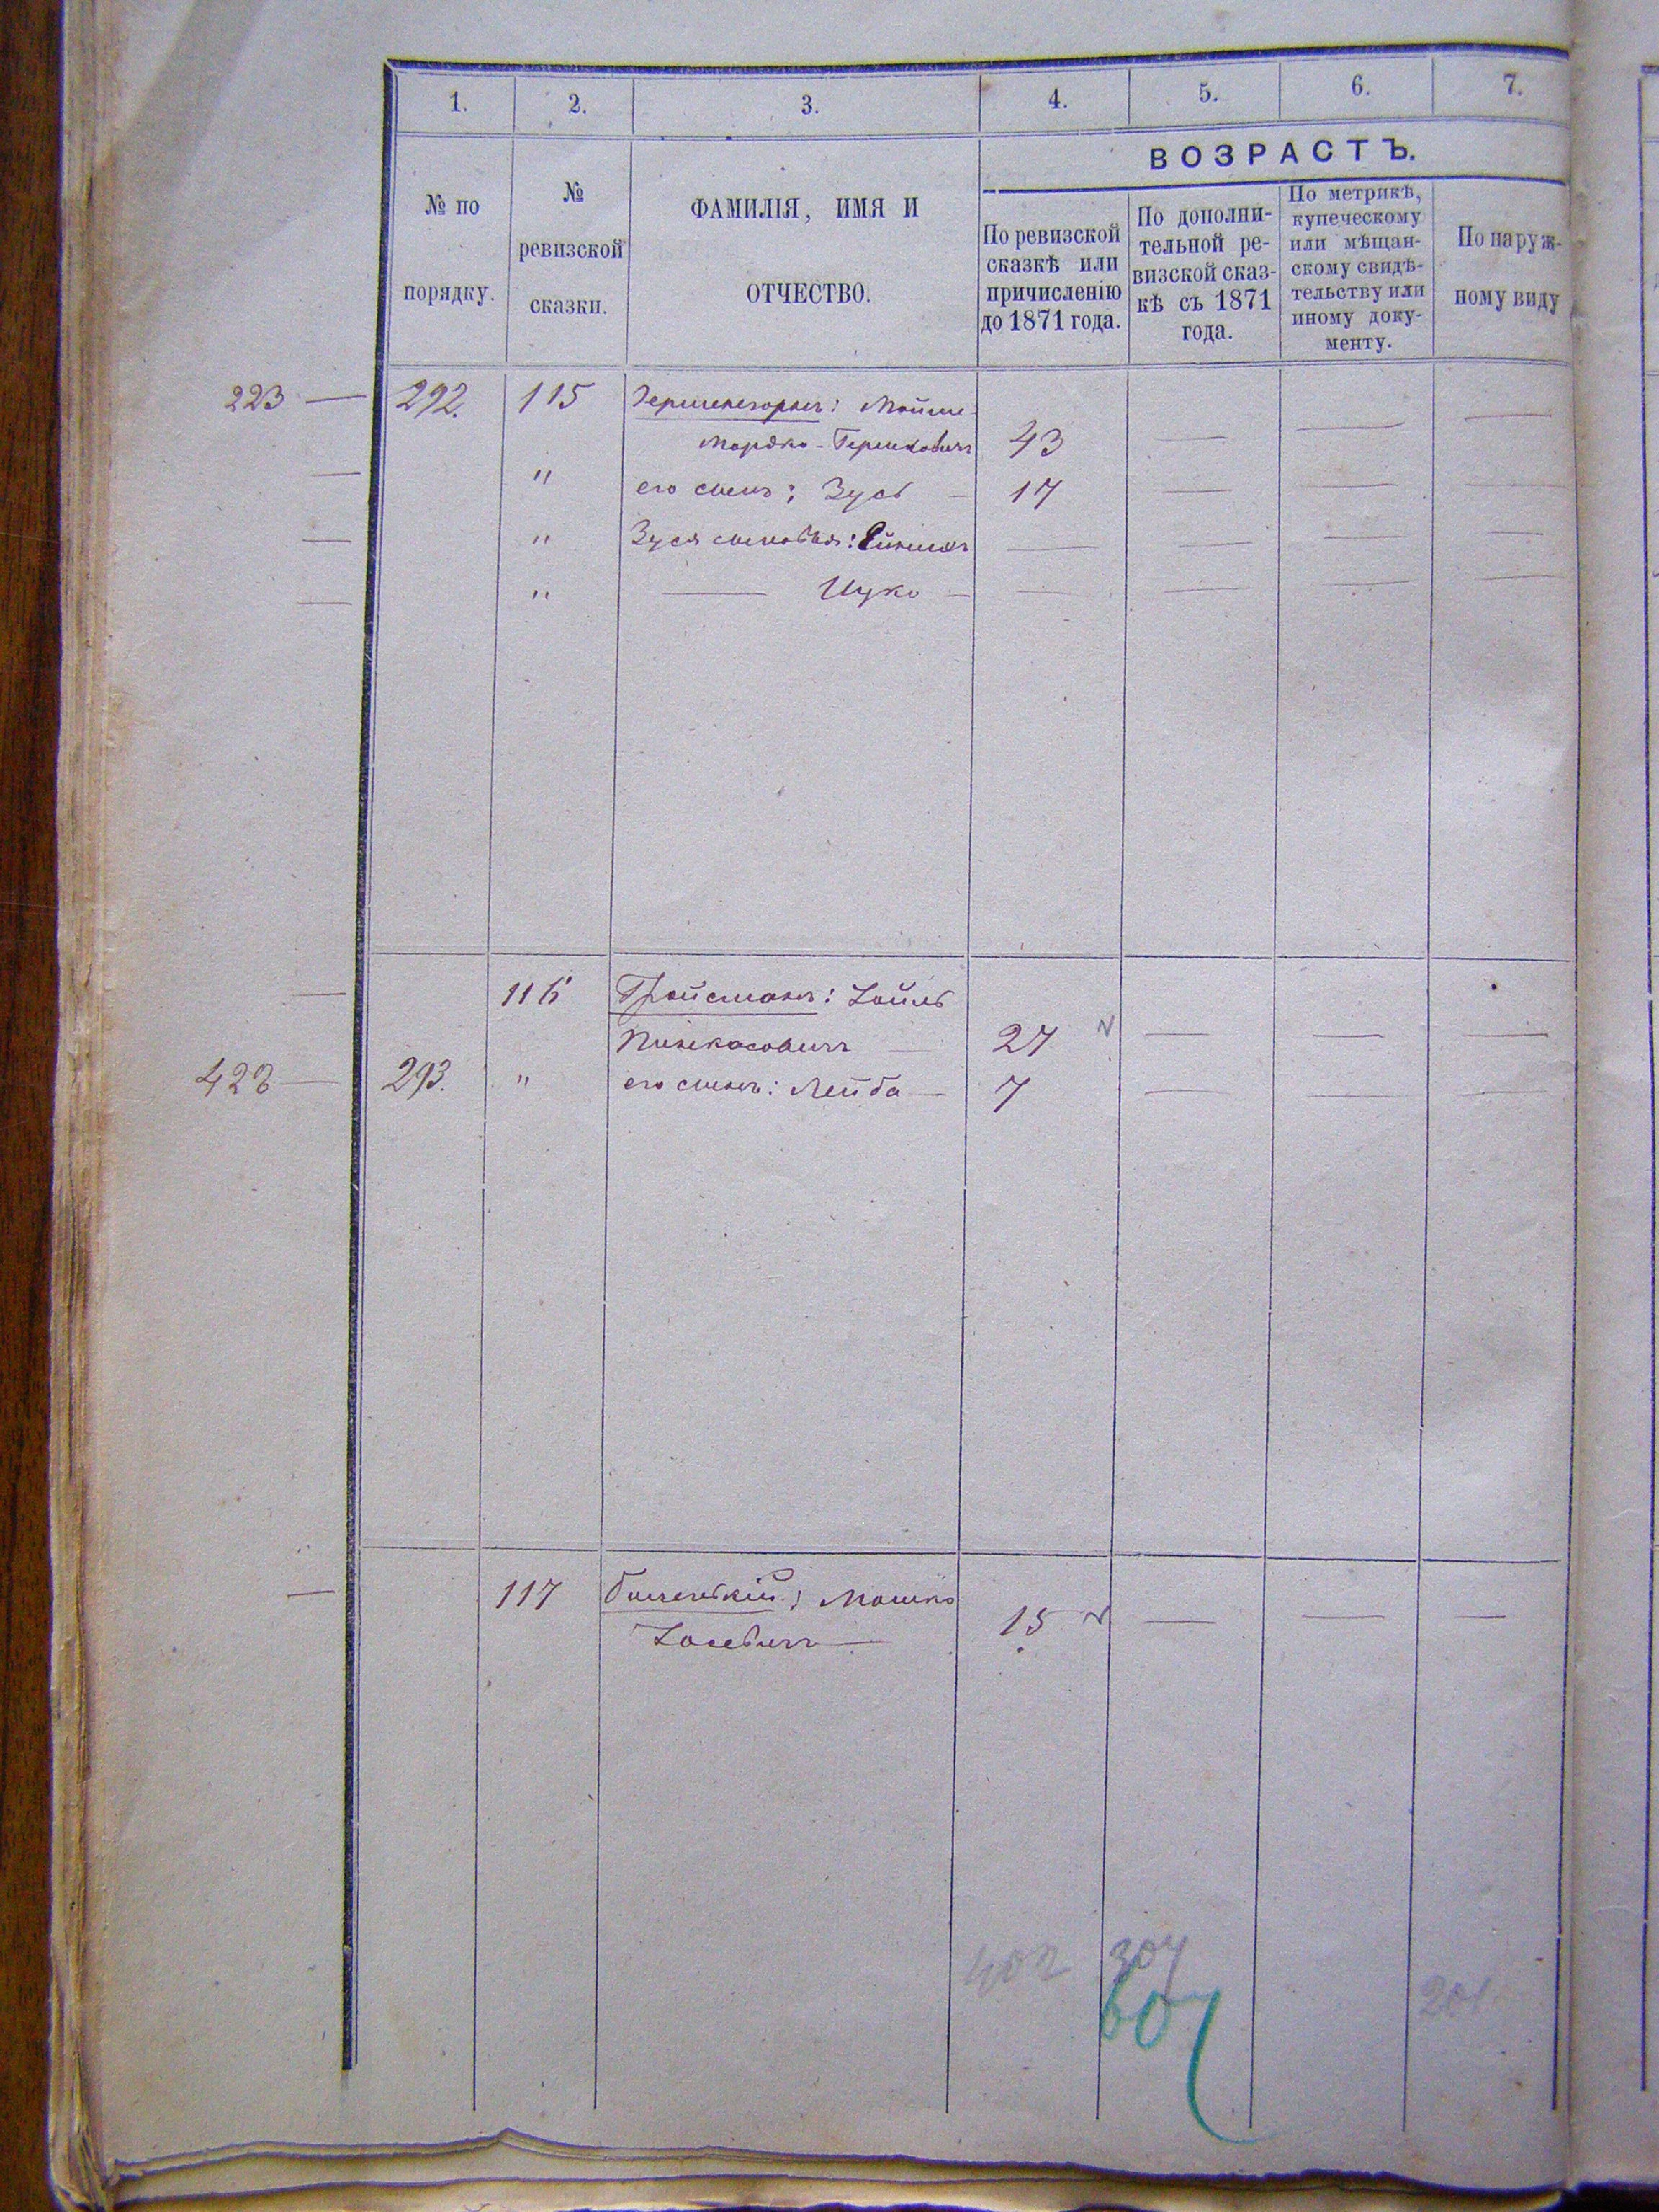 1. 2. 3. 4. 5. 6. 7.
ВОЗРАСТЪ.
№ по
порядку.
№
ревизской
сказки.
ФАМИЛІЯ, ИМЯ И
ОТЧЕСТВО.
По ревизской
сказкѣ или
причисленію
до 1871 года.
По дополни-
тельной ре-
визской сказ-
кѣ съ 1871
года.
По метрикѣ,
купеческому
или мѣщан-
скому свидѣ-
тельству или
иному доку-
менту.
По наруж-
ному виду
223 — 292. 115 Мойше
Мордко - Гершковичъ 43 — — —
— " его сынъ: Зусь — 17 — — —
— " Зуся сыновья: — — — —
— " — Ицко — — — — —
— 116 Гройсманъ: Хаимъ
Пинкасовичъ — 27 — — —
422 — 293. " его сынъ: Лейба — 7 — — —
— 117 Мошко
15 — — —
402 304
607
201